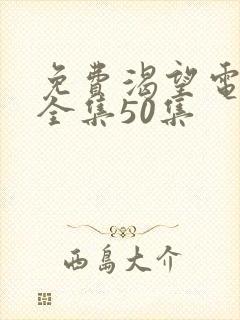 免費渴望電
全集50集
西島大介